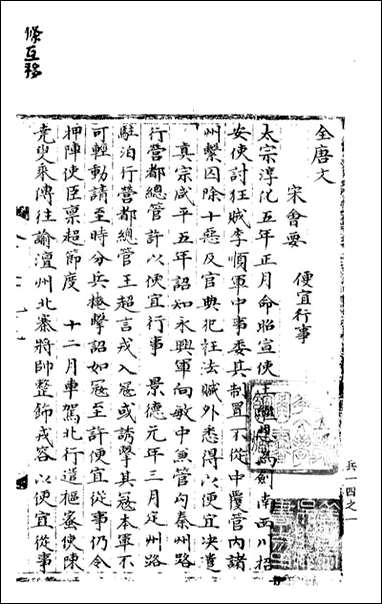 條互移
全唐文
宋會要
便宜行事
太宗淳化五年正月命昭宣使王繼恩爲劍南西川招
安使討狂賊李順軍中事委其制置不從中覆管內諸
州繫囚除十惡及官典犯枉法贓外悉得以便宜決遣
真宗咸平五年詔知永興軍向敏中兼管勾秦州路
行營都總管許以便宜行事　景德元年三月定州路
駐泊行營都總管王超言戎入寇或誘擊其冦本軍不
可輕動請至時分兵掩擊詔如寇至許便宜從事仍令
押陣使臣禀超節度　十二月車駕北行遣樞宻使陳
堯叟乘傳往諭澶州北寨將帥整飾戎容以便宜從事
兵一四之一